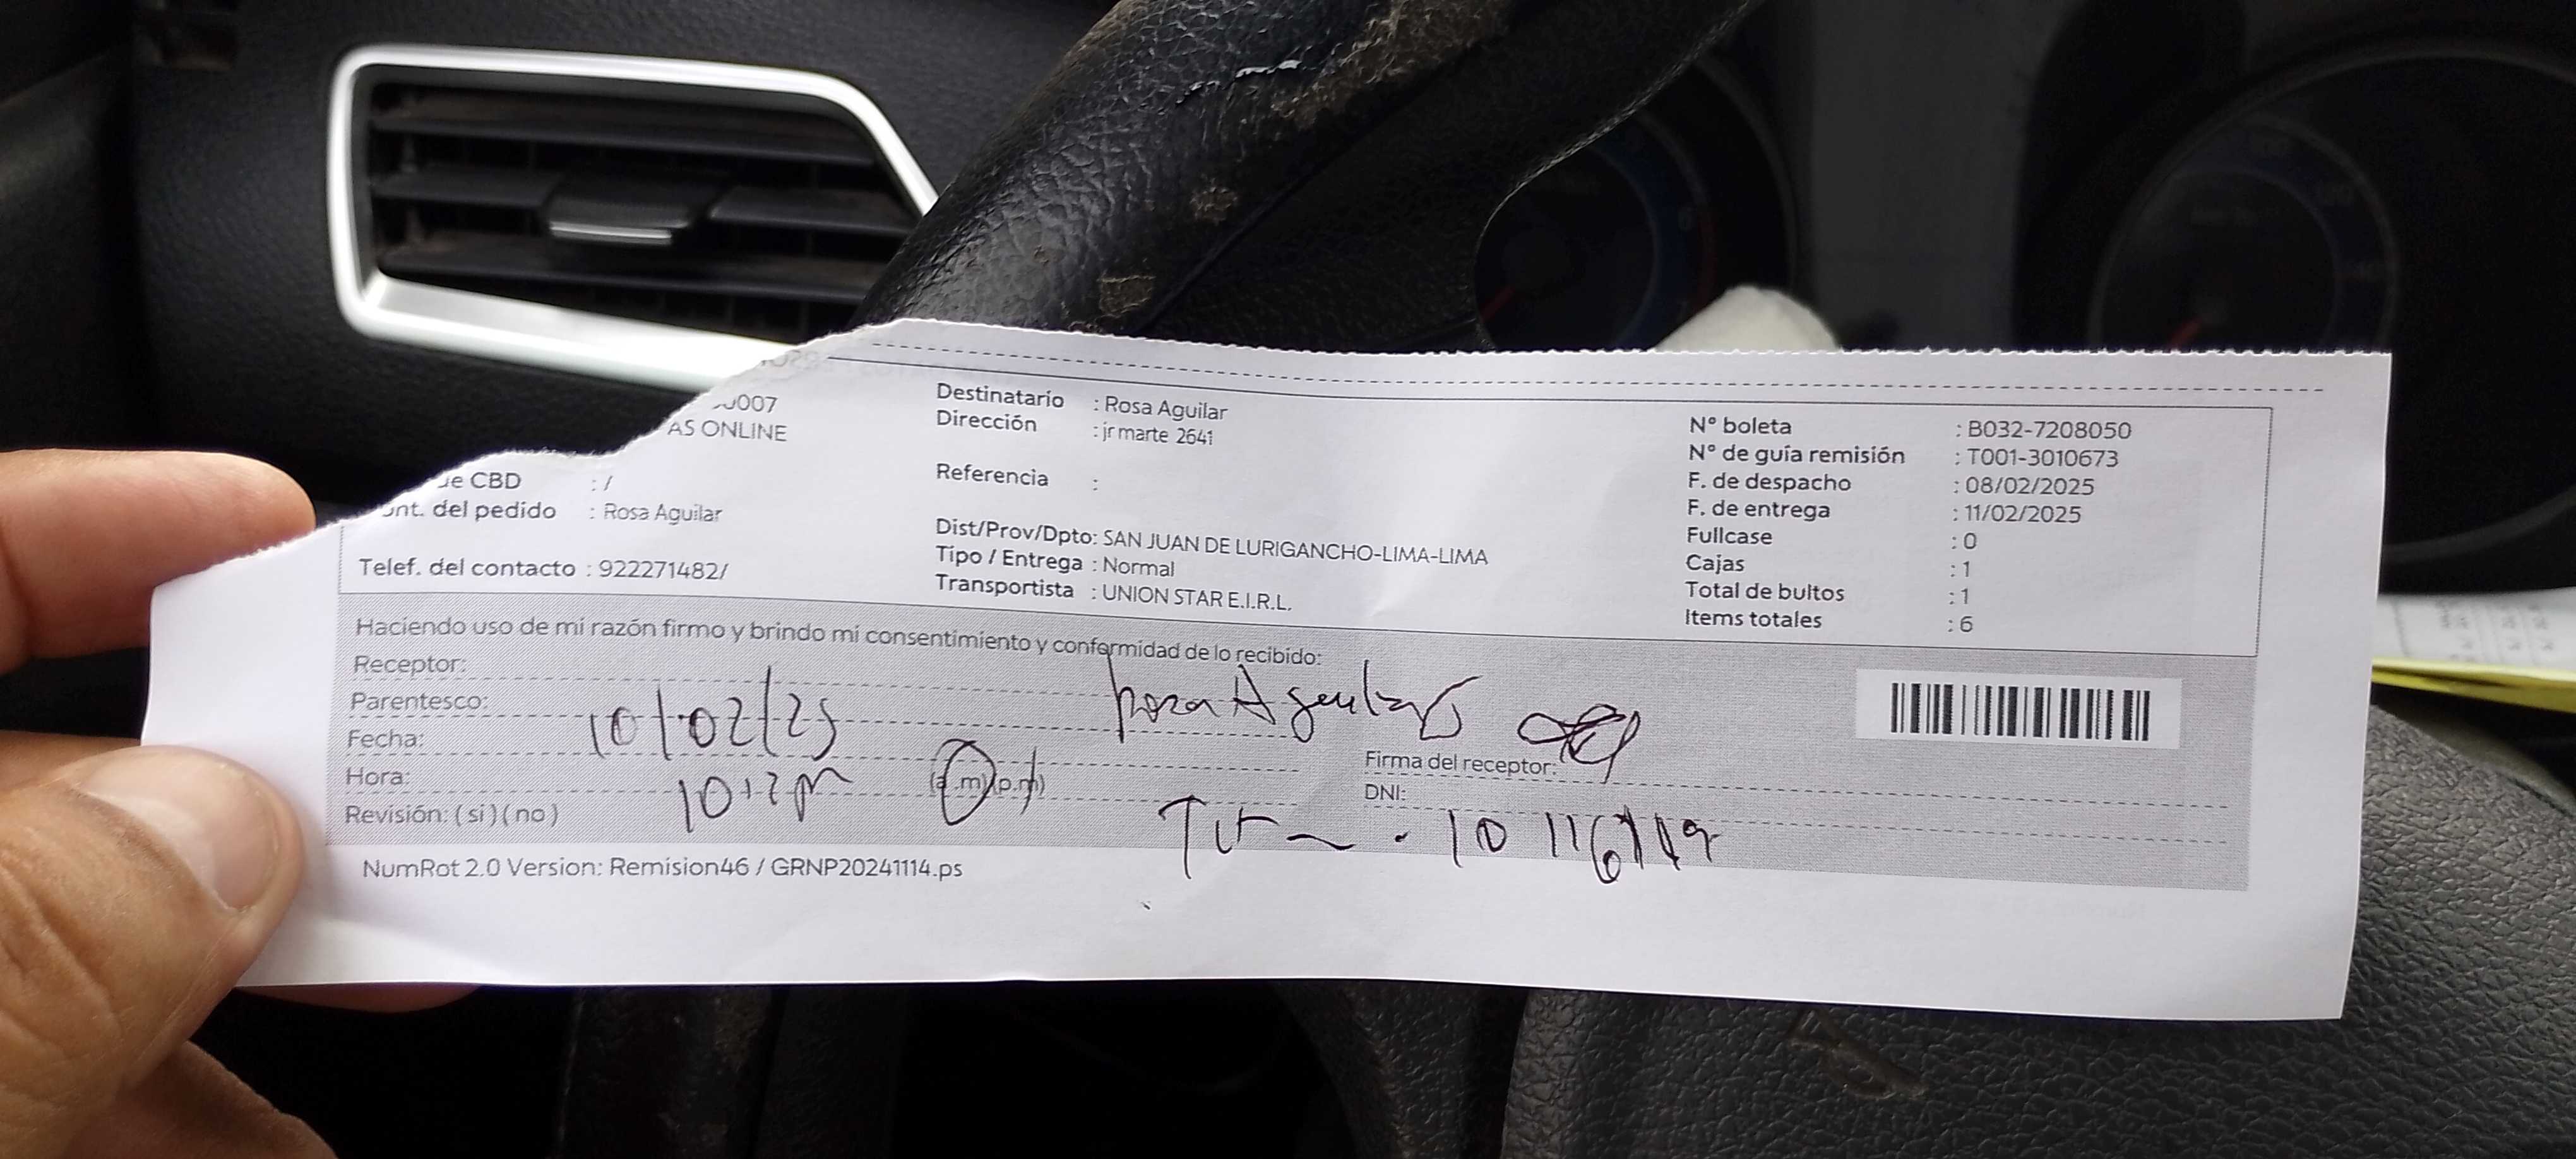 007
AS ONLINE
de CBD : /
ont. del pedido : Rosa Aguilar
Telef. del contacto : 922271482/
Destinatario : Rosa Aguilar
Dirección : jr marte 2641
Referencia :
Dist/Prov/Dpto: SAN JUAN DE LURIGANCHO-LIMA-LIMA
Tipo / Entrega : Normal
Transportista : UNION STAR E.I.R.L.
N° boleta : B032-7208050
N° de guía remisión : T001-3010673
F. de despacho : 08/02/2025
F. de entrega : 11/02/2025
Fullcase : 0
Cajas : 1
Total de bultos : 1
Items totales : 6
Haciendo uso de mi razón firmo y brindo mi consentimiento y conformidad de lo recibido:
Receptor: Rosa Aguilar
Parentesco:
Fecha: 10/02/25
Hora: (a.m)(p.m)
Revisión: (si)(no)
Firma del receptor:
DNI:
NumRot 2.0 Version: Remision46 / GRNP20241114.ps